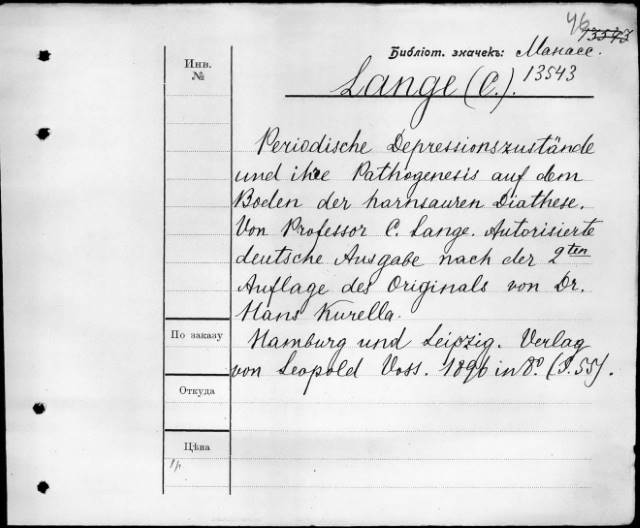 46
13543
Библіот. значекъ: Манасс.
13543
Инв.
№
Lange (C.).
Periodische Depressionszustände
und ihre Pathogenesis auf dem
Boden der harnsauren Diathese.
Von Professor C. Lange. Autorisierte
deutsche Ausgabe nach der 2ten
Auflage des Originals von Dr.
Hans Kurella.
Hamburg und Leipzig. Verlag
von Leopold Voss. 1896 in 8º. (S. 55).
По заказу
Откуда
Цѣва
1р